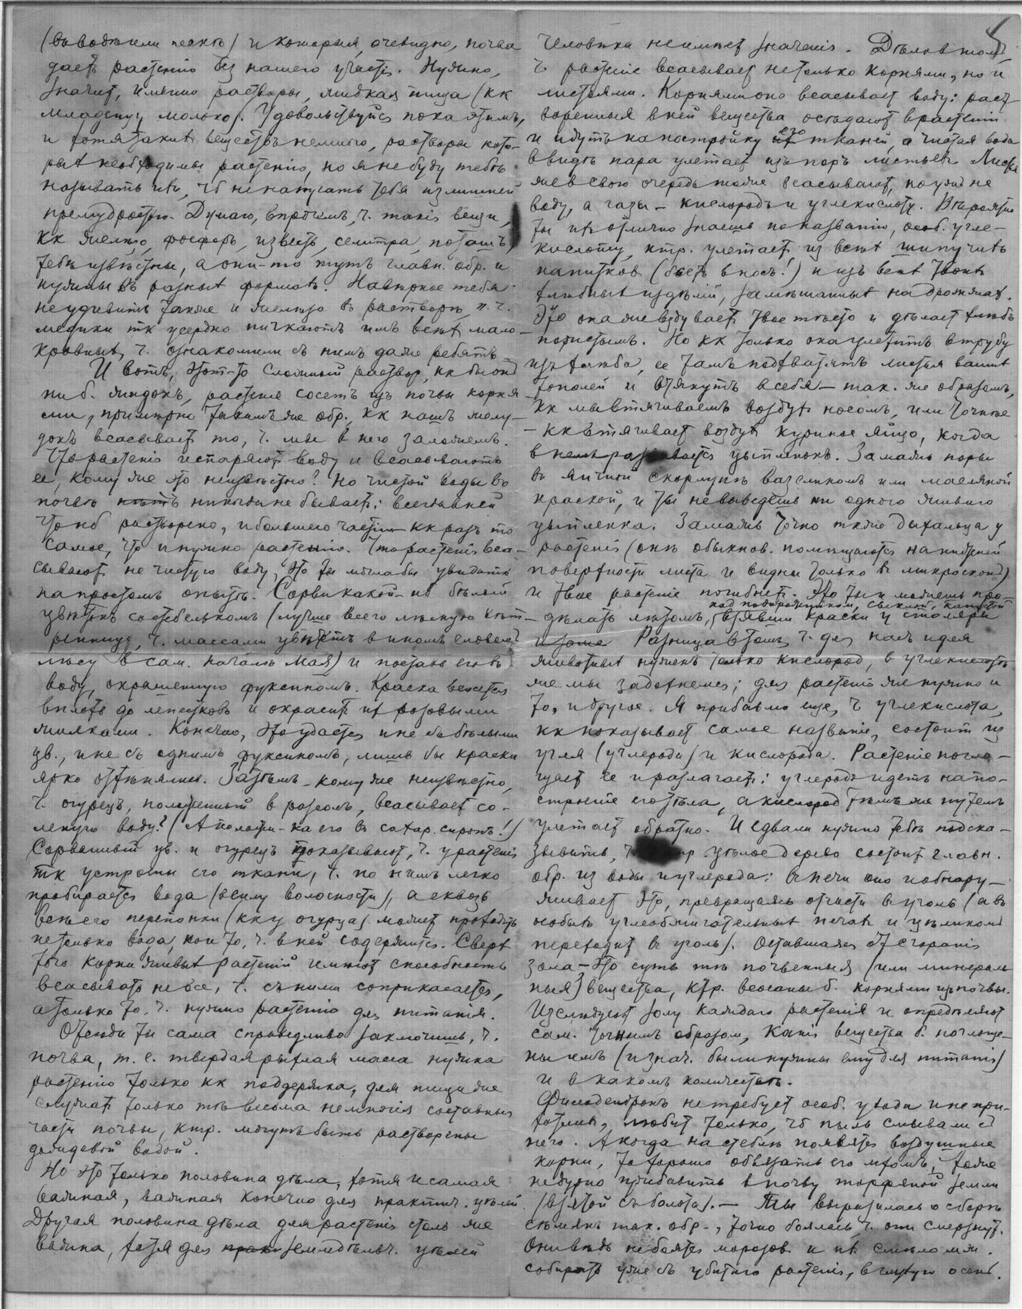 (въ водѣ или песке) и которыя, очевидно, почва
даетъ растенію безъ нашего участія. Нужно,
значит, именно растворы, жидкая пища (кк
младенцу молоко). Удовольствуйся пока этимъ,
и хотя такихъ веществъ немного, растворы кото-
рыхъ необходимы растенію, но я не буду тебѣ
называть ихъ, чтоб не напугать тебя излишней
премудростью. Думаю, впрочемъ, ч. такія вещи,
кк желѣзо, фосфоръ, известь, селитра, поташъ
тебѣ извѣстны, а они-то тутъ главн. обр. и
нужны въ разныхъ формахъ. Навѣрное тебя
не удивитъ также и желѣзо в растворѣ, п. ч.
медики тк усердно пичкаютъ имъ всѣхъ мало-
кровныхъ, ч. ознакомили съ нимъ даже ребятъ.
И вотъ, этот-то сложный раствор, кк бы он
ни б. жидокъ, растеніе сосетъ изъ почвы корня-
ми, примѣрно такимъ же обр., кк нашъ желу-
докъ всасываетъ то, ч. мы в него заложимъ.
Что растенія испаряют воду и всасываютъ
ее, кому же это неизвѣстно? Но чистой воды въ
почвѣ никогда не бываетъ: всегда в ней
что нб растворено, и большею частью кк разъ то
самое, что и нужно растенію. Что растенія вса-
сываютъ не чистую воду, это ты могла бы увидать
на простомъ опытѣ. Сорви какой-нб бѣлый
цвѣтокъ со стебелькомъ (лучше всего лѣсную вѣт-
реницу, ч. массами цвѣтетъ в иномъ еловомъ
лѣсу в сам. началѣ мая) и поставь его въ
воду, окрашенную фуксиномъ. Краска всосется
вплоть до лепестковъ и окрасит их розовыми
жилками. Конечно, это удается и не съ бѣлыми
цв., и не съ однимъ фуксиномъ, лишь бы краски
ярко отѣнялись. Затѣмъ - кому же неизвѣстно,
ч. огурецъ, положенный в разсолъ, всасывает со-
леную воду? (А положи-ка его въ сахар. сиропъ!)
Сорванный цв. и огурецъ показываютъ, ч. у растенія
тк устроены его ткани, ч. по нимъ легко
пробирается вода (въ силу волосности), а сквозь
всѣ его перепонки (кк у огурца) может проходить
не только вода, но и то, ч. в ней содержится. Сверхъ
того корни живыхъ растеній имѣютъ способность
всасывать не все, ч. съ ними соприкасается,
а только то, ч. нужно растенію для питанія.
Отсюда ты сама справедливо заключишь, ч.
почва, т. е. твердая рыхлая масса нужна
растенію только кк поддержка, для пищи же
служатъ только тѣ весьма немногія составныя
части почвы, ктр. могутъ быть растворены
дождевой водой.
Но это только половина дѣла, хотя и самая
важная, важная конечно для практич. цѣлей.
Другая половина дѣла для растенія столь же
важна, хотя для земледѣльч. цѣлей
человѣка не имѣетъ значенія. Дѣло в том,
ч. растеніе всасываетъ не только корнями, но и
листьями. Корнями оно всасываетъ воду: раст-
воренныя в ней вещества оседаютъ в растеніи
и идутъ на постройку его тканей, а чистая вода
в видѣ пара улетаетъ изъ поръ листьевъ. Листья
же в свою очередь тоже всасываютъ, но уж не
воду, а газы - кислородъ и углекислоту. Вѣроятно
ты их отлично знаешь по названію, особ. угле-
кислоту, ктр. улетает из всѣхъ шипучихъ
напитковъ (бьетъ в носъ!) и изъ всѣхъ твоихъ
хлѣбныхъ издѣлій, замѣшанныхъ на дрожжахъ.
Это она же вздувает твое тѣсто и дѣлает хлѣбъ
ноздреватымъ. Но кк только она улетитъ в трубу
изъ хлѣба, ее тамъ подхватятъ листья вашихъ
тополей и втянутъ в себя - так. же образомъ,
кк мы втягиваемъ воздухъ носомъ, или точнѣе
- кк втягивает воздух куриное яйцо, когда
в немъ развивается цыпленокъ. Замажь поры
въ яичной скорлупѣ вазелиномъ или масляной
краской, и ты не выведешь ни одного живого
цыпленка. Замажь точно также дыхальца у
растенія (онѣ обыкнов. помѣщаются на нижней
поверхности листа и видны только въ микроскопъ)
и твое растеніе погибнетъ. Это ты и можешь про-
дѣлать лѣтомъ, над подорожникомъ, свеклой, капустой
взявши краски у столяра
Разница в томъ, ч. для насъ и для
животныхъ нуженъ только кислород, в углекислотѣ
же мы задохнемся; для растенія же нужно и
то, и другое. Я прибавлю еще, ч углекислота,
кк показывает самое названіе, состоит из
угля (углерода) и кислорода. Растеніе погло-
щает ее и разлагает: углеродъ идетъ на по-
строеніе его тѣла, а кислород тѣмъ же путемъ
улетает обратно. И едва ли нужно тебѣ подска-
зывать, ч. цѣлое дерево состоит главн.
обр. из воды и углерода: в печи оно и обнару-
живает это, превращаясь отчасти в уголь (а в
особыхъ углеобжигательныхъ печах и цѣликомъ
переходит в уголь). Оставшаяся от сгоранія
зола - это суть тѣ почвенныя (или минераль-
ныя) вещества, ктр. всосаны б. корнями изъ почвы.
Изслѣдуют золу каждаго растенія и опредѣляют
сам. точнымъ образом, какія вещества б. поглоще-
ны имъ (и знач. были нужны ему для питанія)
и в какомъ количествѣ.
Филодендронъ не требует особ. ухода и не при-
хотливъ, любит только, чтоб пыль смывали съ
него. А когда на стеблѣ появятся воздушные
корни, то хорошо обвязать его мхомъ, также
недурно прибавить в почву торфяной земли
(взятой съ болота). - Ты выразилась о сборѣ
сѣмянъ так. обр., точно боялась ч. они смерзнут.
Они вѣдь не боятся морозов. и их смѣло мж.
собирать уже съ убитаго растенія, в глухую осень.